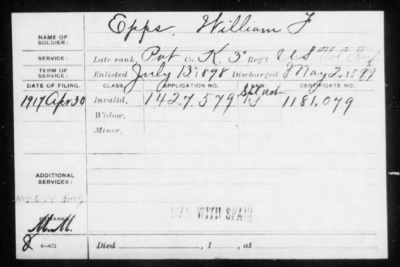 NAME OF SOLDIER: Epps, William F
SERVICE: Late rank, Pvt Co. K, 3" Reg't U S Vol Inf
TERM OF SERVICE: Enlisted July 13, 1898 Discharged May 2, 1899
DATE OF FILING. CLASS. APPLICATION NO. CERTIFICATE NO.
1917 Apr 30 Invalid, 1427.579 1181.079
Widow,
Minor,
ADDITIONAL SERVICES:
WAR WITH SPAIN
M.M.
Died , 1 , at